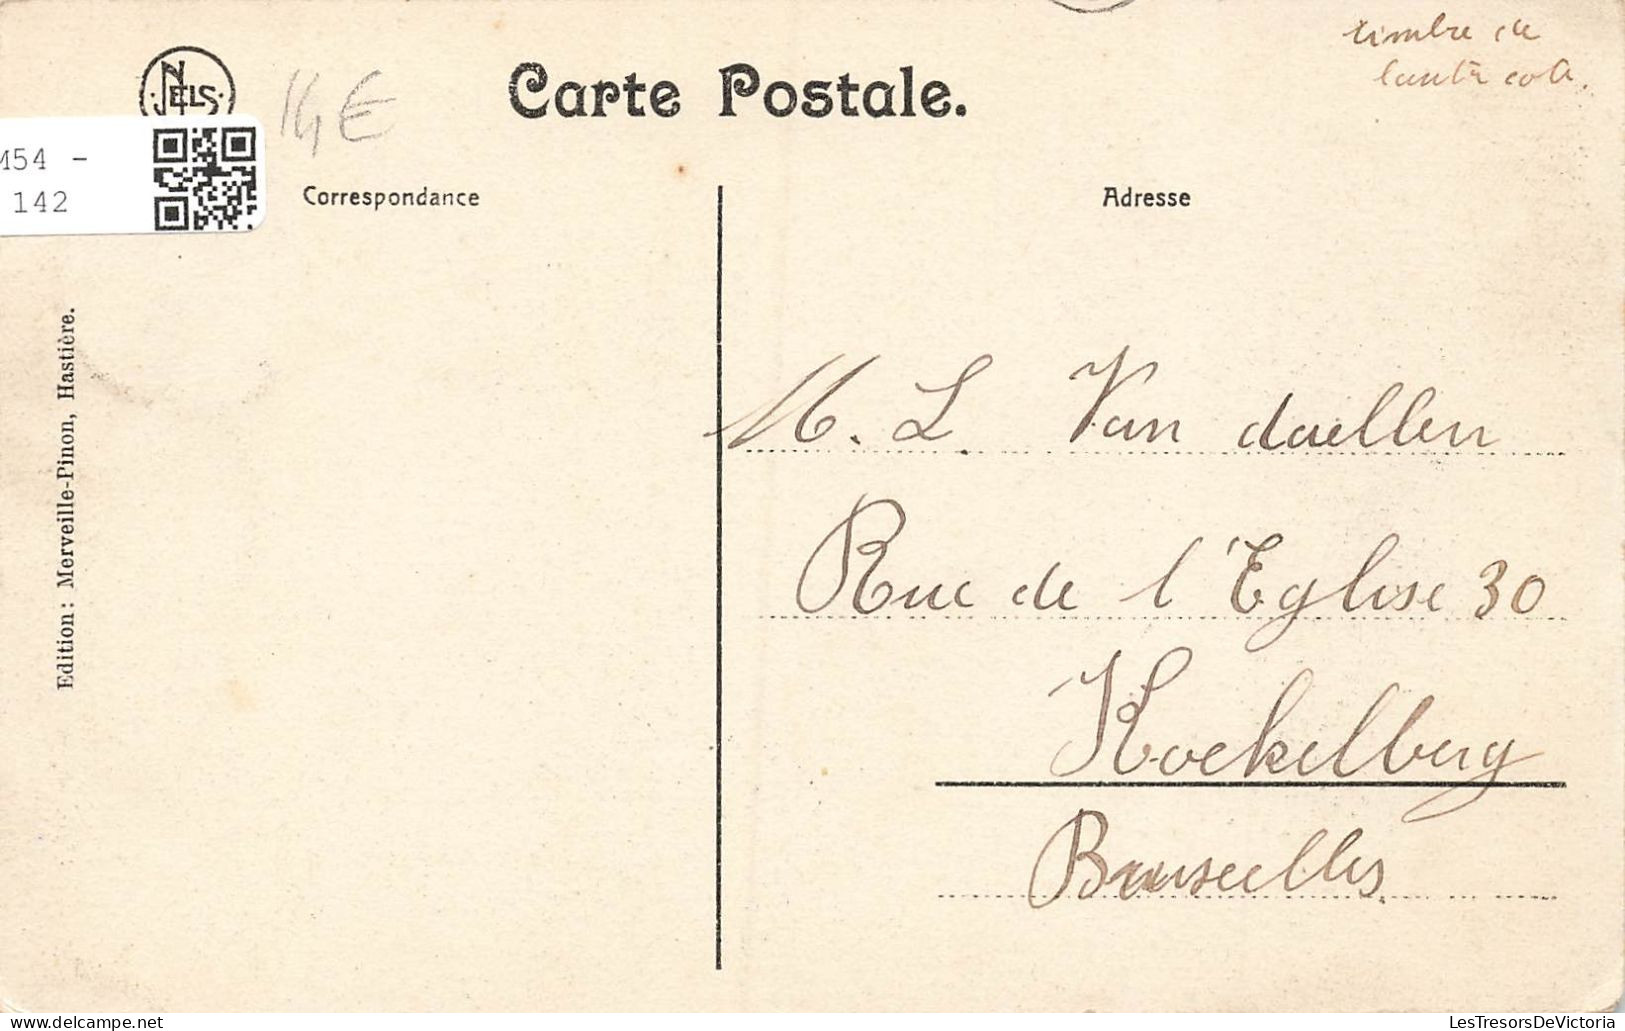 timbre de
l'autr cote.
NELS
14 €
Carte Postale.
M54 -
142
Correspondance
Adresse
Edition: Merveille-Pinon, Hastière.
M. L Van daellen
Rue de l'Eglise 30
Koekelberg
Bruxelles
LesTresorsDeVictoria